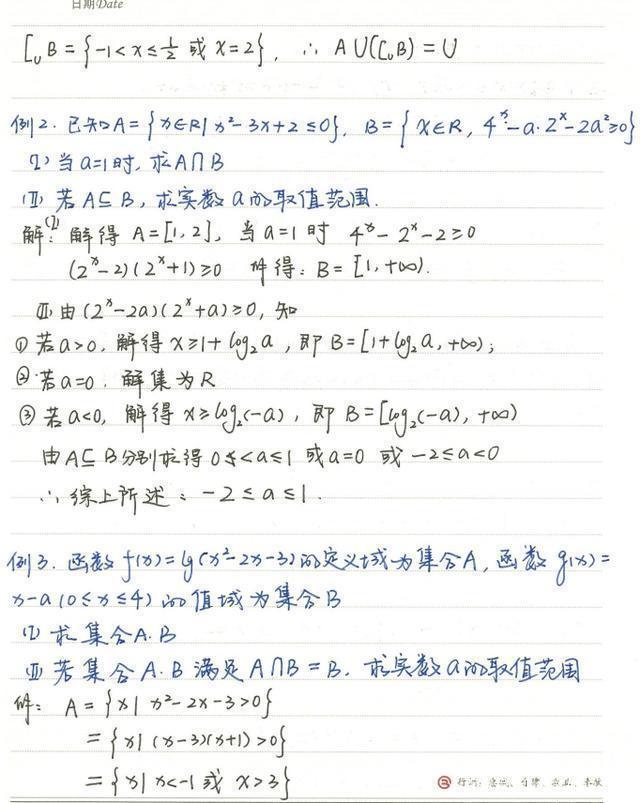 日期Date
∁ᵤB = {-1<x≤1/2 或 x=2}, ∴ A∪(∁ᵤB) = U
例2. 已知A={x∈R|x²-3x+2≤0}, B={x∈R, 4ˣ-a·2ˣ-2a²≥0}
(I) 当a=1时, 求A∩B
(II) 若A⊆B, 求实数a的取值范围.
解:(I) 解得 A=[1,2], 当a=1时 4ˣ-2ˣ-2≥0
(2ˣ-2)(2ˣ+1)≥0 解得: B=[1,+∞).
(II) 由(2ˣ-2a)(2ˣ+a)≥0, 知
① 若a>0, 解得 x≥1+log₂a, 即 B=[1+log₂a,+∞);
② 若a=0, 解集为R
③ 若a<0, 解得 x≥log₂(-a), 即 B=[log₂(-a), +∞)
由A⊆B分别求得 0<a≤1 或a=0 或 -2≤a<0
∴ 综上所述: -2≤a≤1.
例3. 函数f(x)=lg(x²-2x-3)的定义域为集合A, 函数g(x)=
x-a(0≤x≤4)的值域为集合B
(I) 求集合A.B
(II) 若集合A.B满足A∩B=B. 求实数a的取值范围
解: A={x|x²-2x-3>0}
={x|(x-3)(x+1)>0}
={x|x<-1或x>3}